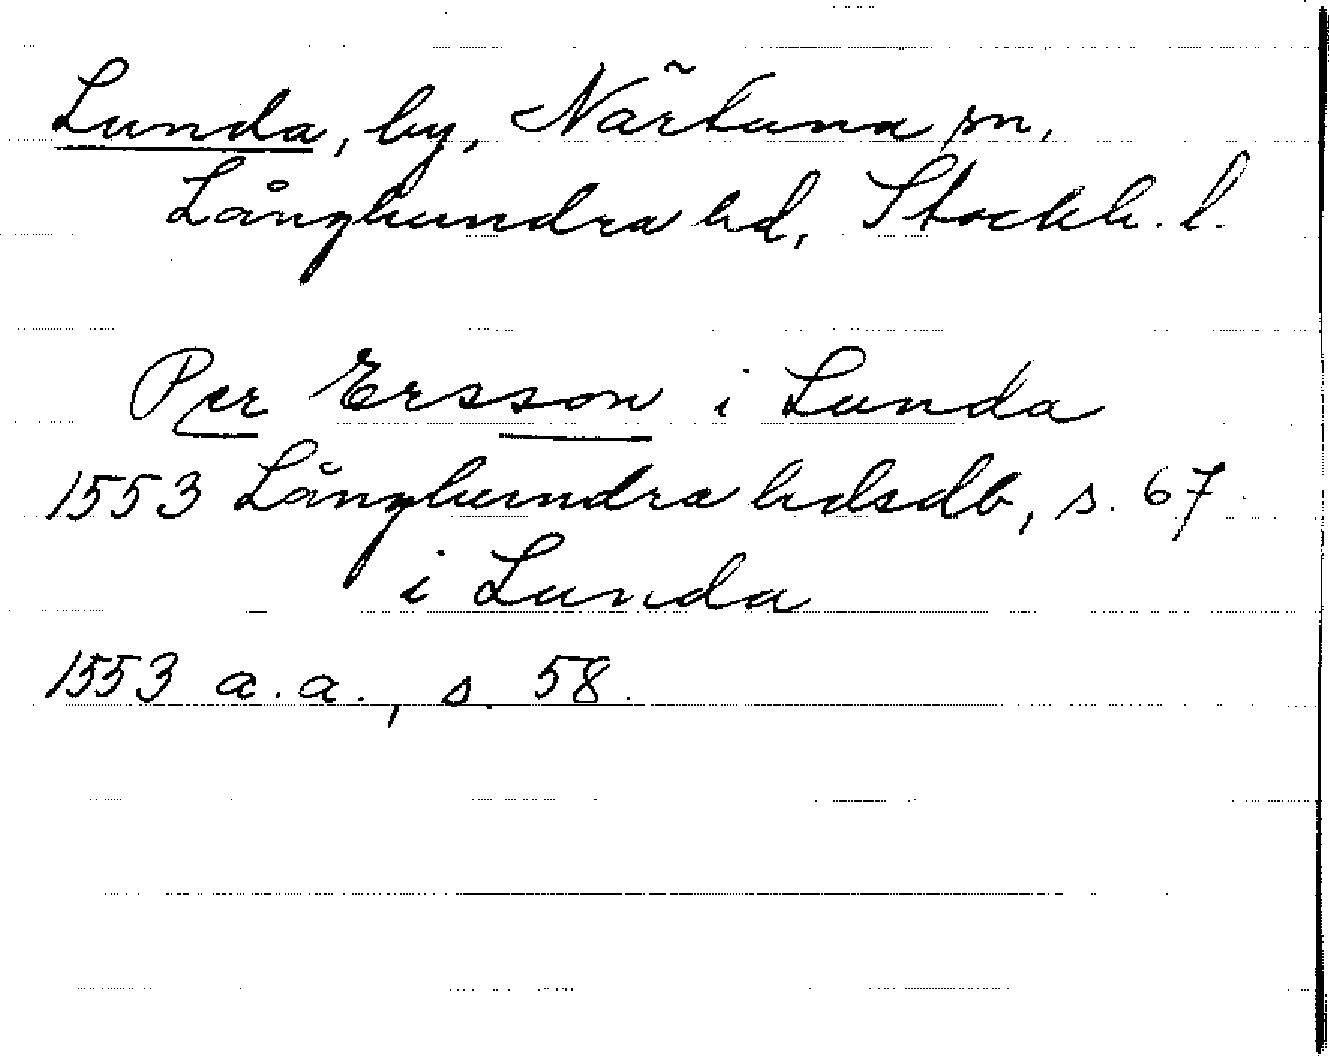 Lunda, by, Närtuna sn,
Långhundra hd, Stockh. l.
Per Ersson i Lunda
1553 Långhundra hdsdb, s. 67
i Lunda
1553 a.a., s. 58.